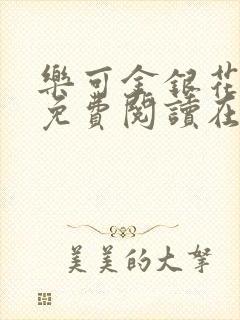 樂可金銀花
免費閱讀在
美美的大拏